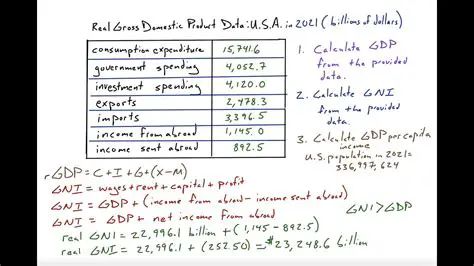 Real Gross Domestic Product Data: U.S.A. in 2021 (billions of dollars)
consumption expenditure 15,741.6
government spending 4,052.7
investment spending 4,120.0
exports 2,478.3
imports 3,396.5
income from abroad 1,145.0
income sent abroad 892.5
1. Calculate GDP
from the provided
data.
2. Calculate GNI
from the provided
data.
3. Calculate GDP per capita
income
U.S. population in 2021=
336,997,624
rGDP = C + I + G + (X-M)
GNI = wages + rent + capital + profit
GNI = GDP + (income from abroad - income sent abroad)
GNI = GDP + net income from abroad
GNI > GDP
real GNI = 22,996.1 billion + (1,145 - 892.5)
real GNI = 22,996.1 + (252.50) = $23,248.6 billion